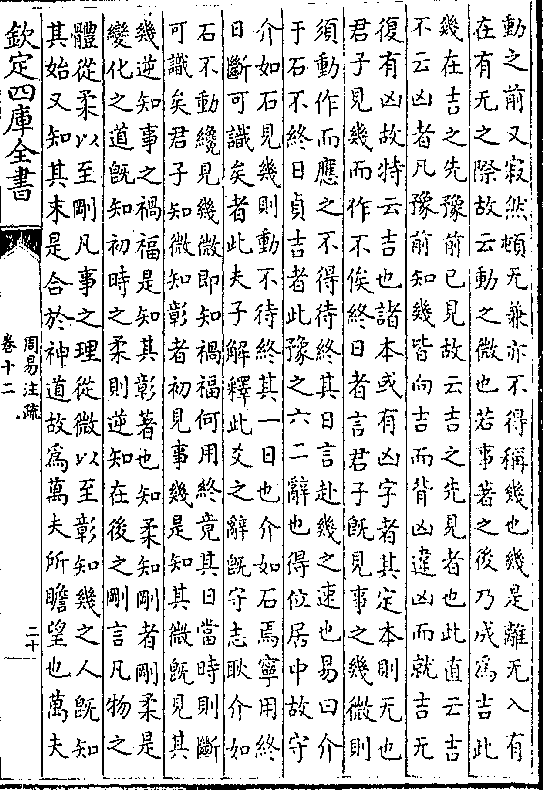 動之前又寂然頓无兼亦不得稱幾也幾是離无入有
在有无之際故云動之微也若事著之後乃成為吉此
幾在吉之先豫前已見故云吉之先見者也此直云吉
不云凶者凡豫前知幾皆向吉而背凶違凶而就吉无
復有凶故特云吉也諸本或有凶字者其定本則无也
君子見幾而作不俟終日者言君子既見事之幾微則
須動作而應之不得待終其日言赴幾之速也易曰介
于石不終日貞吉者此豫之六二辭也得位居中故守
介如石見幾則動不待終其一日也介如石焉寧用終
日斷可識矣者此夫子解釋此爻之辭既守志耿介如
石不動纔見幾微即知禍福何用終竟其日當時則斷
可識矣君子知微知彰者初見事幾是知其微既見其
幾逆知事之禍福是知其彰著也知柔知剛者剛柔是
變化之道既知初時之柔則逆知在後之剛言凡物之
體從柔以至剛凡事之理從微以至彰知幾之人既知
其始又知其末是合於神道故為萬夫所瞻望也萬夫
欽定四庫全書
周易注疏
卷十二
二十